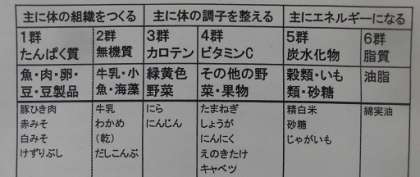 主に体の組織をつくる 主に体の調子を整える 主にエネルギーになる
1群 2群 3群 4群 5群 6群
たんぱく質 無機質 カロテン ビタミンC 炭水化物 脂質
魚・肉・卵・ 牛乳・小 緑黄色 その他の野 穀類・いも 油脂
豆・豆製品 魚・海藻 野菜 菜・果物 類・砂糖
豚ひき肉 牛乳 にら たまねぎ 精白米 綿実油
赤みそ わかめ にんじん しょうが 砂糖
白みそ (乾) にんにく じゃがいも
けずりぶし だしこんぶ えのきたけ
キャベツ